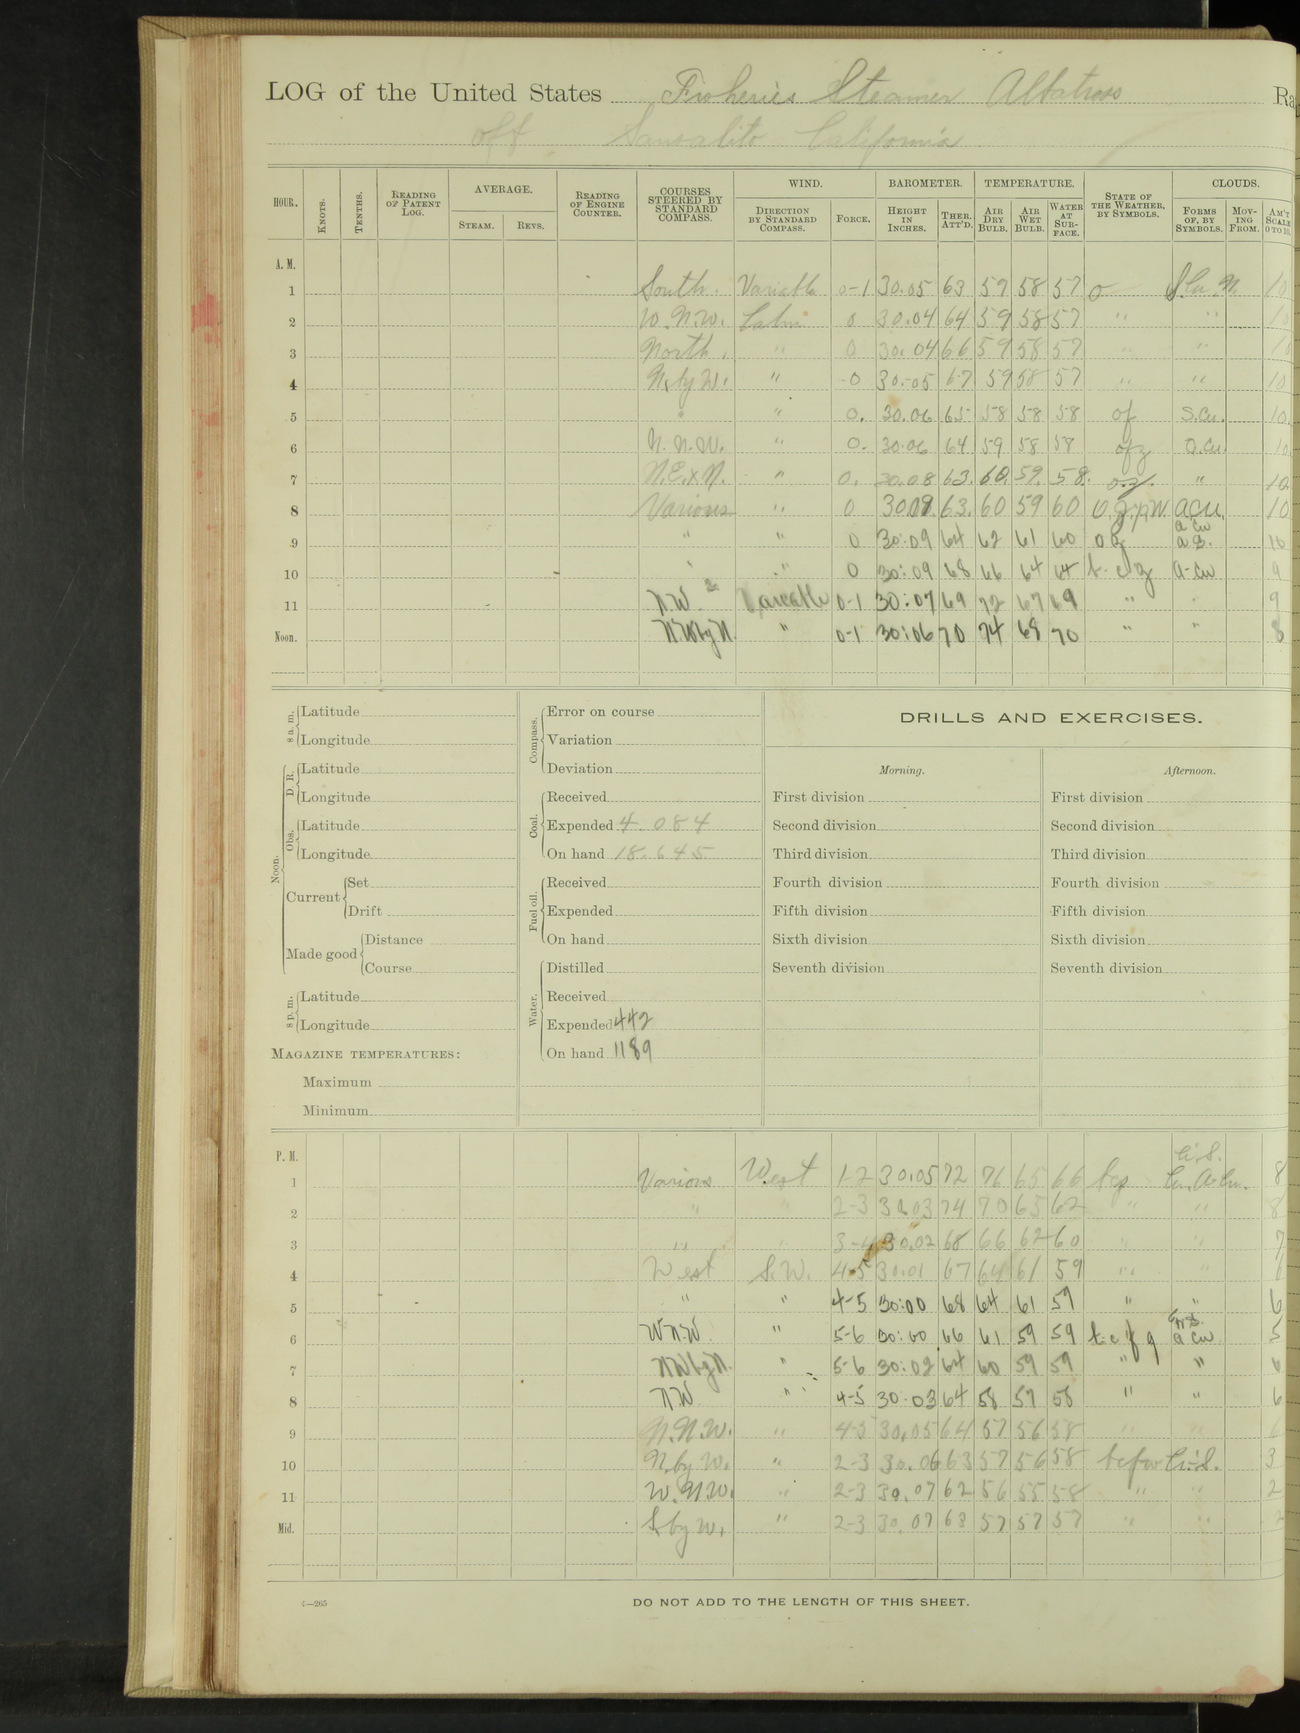 LOG of the United States Fisheries Steamer Albatross Ra
off Sausalito California
HOUR. KNOTS. TENTHS. READING OF PATENT LOG. AVERAGE. STEAM. REVS. READING OF ENGINE COUNTER. COURSES STEERED BY STANDARD COMPASS. WIND. DIRECTION BY STANDARD COMPASS. FORCE. BAROMETER. HEIGHT IN INCHES. THER. ATT'D. TEMPERATURE. AIR DRY BULB. AIR WET BULB. WATER AT SURFACE. STATE OF THE WEATHER, BY SYMBOLS. CLOUDS. FORMS OF, BY SYMBOLS. MOVING FROM. AM'T SCALE 0 TO 10.
A. M.
1 South. Variable 0-1 30.05 63 59 58 57 o S.Cu. N. 10
2 W.N.W. Calm 0 30.04 64 59 58 57 " " 10
3 North. " 0 30.04 66 59 58 57 " " 10
4 N. by W. " 0 30.05 67 59 58 57 " " 10
5 " " 0. 30.06 65 58 58 58 of S.Cu. 10.
6 N.N.W. " 0. 30.06 64 59 58 58 ofz 10.
7 N.E.xN. " 0. 30.08 63. 60. 59. 58. oz. " 10.
8 Various " 0 30.09. 63. 60 59 60 A.Cu. 10
9 " " 0 30:09 64 62 61 60 oz a cu a s. 10
10 " " 0 30:09 68 66 64 64 b.c.z a-cu 9
11 N.W. Variable 0-1 30:07 69 72 67 69 " " 9
Noon. NW by N. " 0-1 30:06 70 74 68 70 " " 8
8 a. m. Latitude
Longitude
Noon. D. R. Latitude
Longitude
Obs. Latitude
Longitude
Current Set
Drift
Made good Distance
Course
8 p. m. Latitude
Longitude
MAGAZINE TEMPERATURES:
Maximum
Minimum
Compass. Error on course
Variation
Deviation
Coal. Received
Expended 4.084
On hand 18.645
Fuel oil. Received
Expended
On hand
Water. Distilled
Received
Expended 442
On hand 1189
DRILLS AND EXERCISES.
Morning. Afternoon.
First division First division
Second division Second division
Third division Third division
Fourth division Fourth division
Fifth division Fifth division
Sixth division Sixth division
Seventh division Seventh division
P. M.
Ci.S.
1 Various West 1-2 30.05 72 76 65 66 bcz Cu. A.Cu. 8
2 " " 2-3 30.03 74 70 65 62 " " 8
3 " " 3-4 30.02 68 66 62 60 " " 7
4 West S.W. 4-5 30.01 67 64 61 59 " " 6
5 " " 4-5 30:00 68 64 61 59 " " 6
6 WNW " 5-6 30:00 66 61 59 59 b.c f q a cu 5
7 NW by N. " 5-6 30:02 64 60 59 59 " " 6
8 N.W. " 4-5 30.03 64 58 57 58 " " 6
9 N.N.W. " 4-5 30.05 64 57 56 58 " " 6
10 N. by W. " 2-3 30.06 63 57 56 58 bcfw Ci.S. 3
11 W.N.W. " 2-3 30.07 62 56 55 58 " " 2
Mid. S. by W. " 2-3 30.07 63 57 57 57 " " 2
4—265
DO NOT ADD TO THE LENGTH OF THIS SHEET.